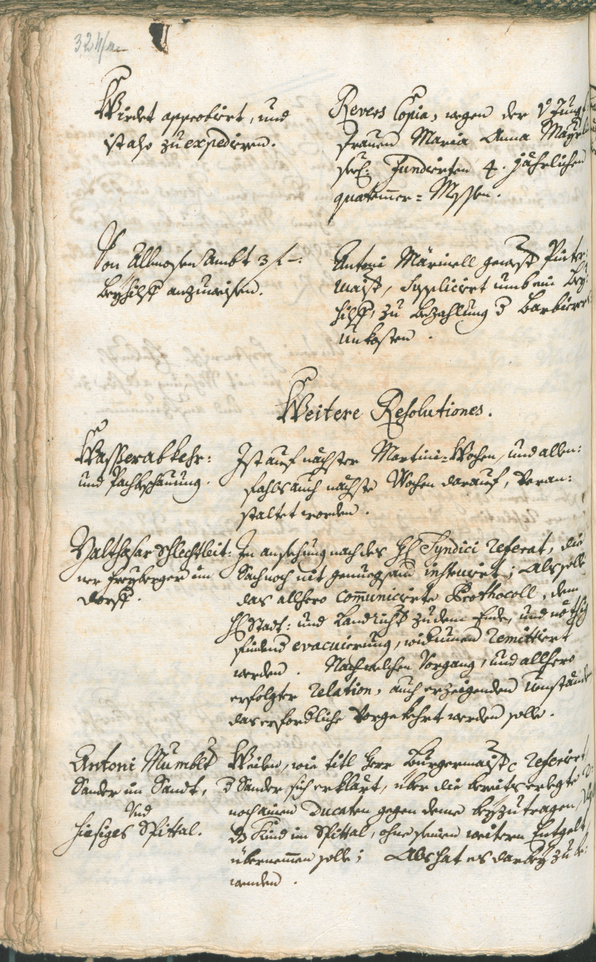 Wirdet approbiert, und
ist also zu expedieren.
Revers Copia, wegen der Jung
frauen Maria Anna Mayr
seel. fundierten 4. jährlichen
quatemer= Messen.
Von Allmosen Ambt 3 f –
Beyhilff anzuweisen.
Antoni Märinell gewest Pinter
maister, suppliciert umb ein Bey
hilff, zu bezahlung d Barbierer
unkosten.
Weitere Resolutiones.
Wasserabkehr:
und Pachbschauung.
Ist auf nächster Martini=Wochen, und allen:
fahls auch nächste Wochen darauf, veran:
staltet worden.
Balthasar Schlechtleit:
ner Freyberger im
Dorff.
In ansehung nach des H Syndici referat, die
Sach noch nit genugsam instruirt; Als solle
das allhero comunicierte Prothocoll, dem
H Statt: und Landricht zu dem Ende, und nöthig
findend evacuierung, widrumen remittiert
werden. Nach welchen Vorgang, und allhero
erfolgter relation, auch erzeigenden Umständen
das erfordliche vorgekehrt werden solle.
Antoni Mumblt
Sander im Sandt,
Und
hiesiges Spittal.
Weilen, wie titl Herr Burgermaister referiert
d Sander sich erklärt, über die bereits erlegte
noch ainen Ducaten gegen deme beyzutragen,
ds Kind im Spittal, ohne seinen weitern Entgelt
übernemmen solle; Als hat es darbey zu be
wenden.